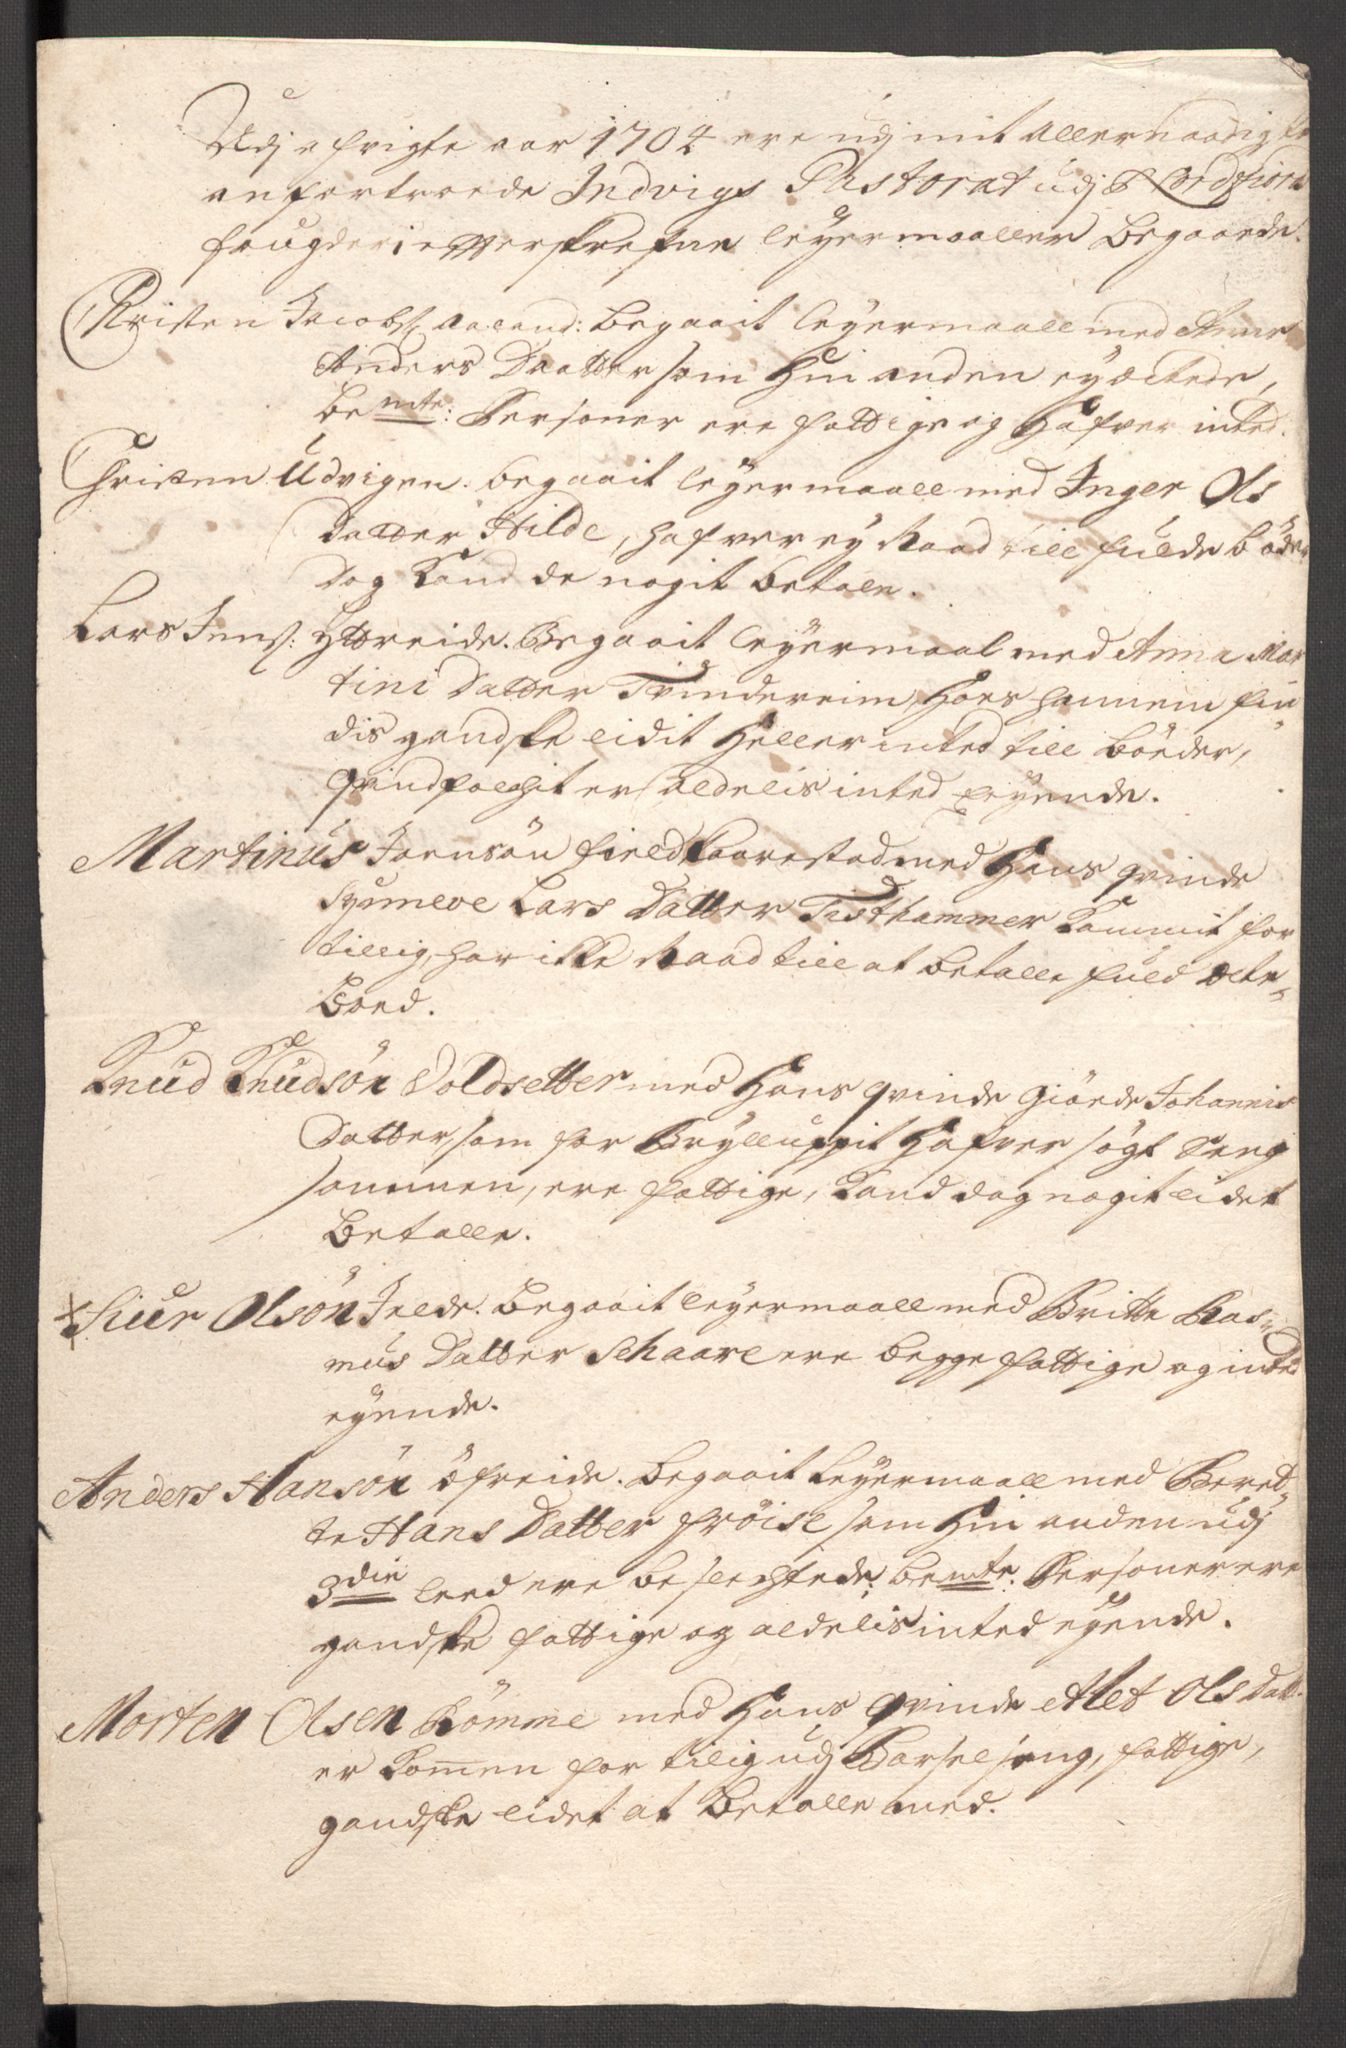 Udj afvigte aar 1704 ere udj mit Allernaadigste
anfortroede Indvigs Pastorat udj Nordfiords
faugderi efterskrefne leyermaaller begaaede.
Christen Jacobs: Aaland: begaait leyermaall med Anne
Anders Daatter som hin anden eyæctede,
bemte: Personer ere fattige og hafver inted.
Christen Udvigen. begaait leyermaall med Inger Ols
Datter Hilde, hafver ey Raad till fulde böder
Dog kand de nogit betale.
Lars Jens: Yttreide. Begaait leyermaal med Anna Mar
tini Datter Tvindereim, hoes hannem fin
dis gandske lidit heller inted till böeder,
qvindfolchit er aldelis inted eyende.
Martinus Joensön field Kaarestad med hans qvinde
Synneve Lars Datter Tisthammer kommit for
tillig, har ikke Raad till at betalle fuld ækte-
Boed.
Knud Knudsön Voldsetter med hans qvinde Giörde Johannis
Datter, som for Brylluppit hafver sögt Seng
sammen, ere fattige, kand dog nogit lidet
betalle.
Siur Olsön Jelde. begaait leyermaall med Britte Ras-
mus Datter Schaare ere begge fattige og inted
eyende.
Anders Hansön öfreide. begaait leyermaall med Bered-
te Hans Datter fröise som hin anden udj
3die leed ere beslechtede: bemte. Personer ere
gandske fattige og aldelis inted eyende.
Morten Olsen Römme med hans qvinde Alet Ols Datt.
er komen for tilig udj Barselseng, fattige,
gandske lidet at betalle med.